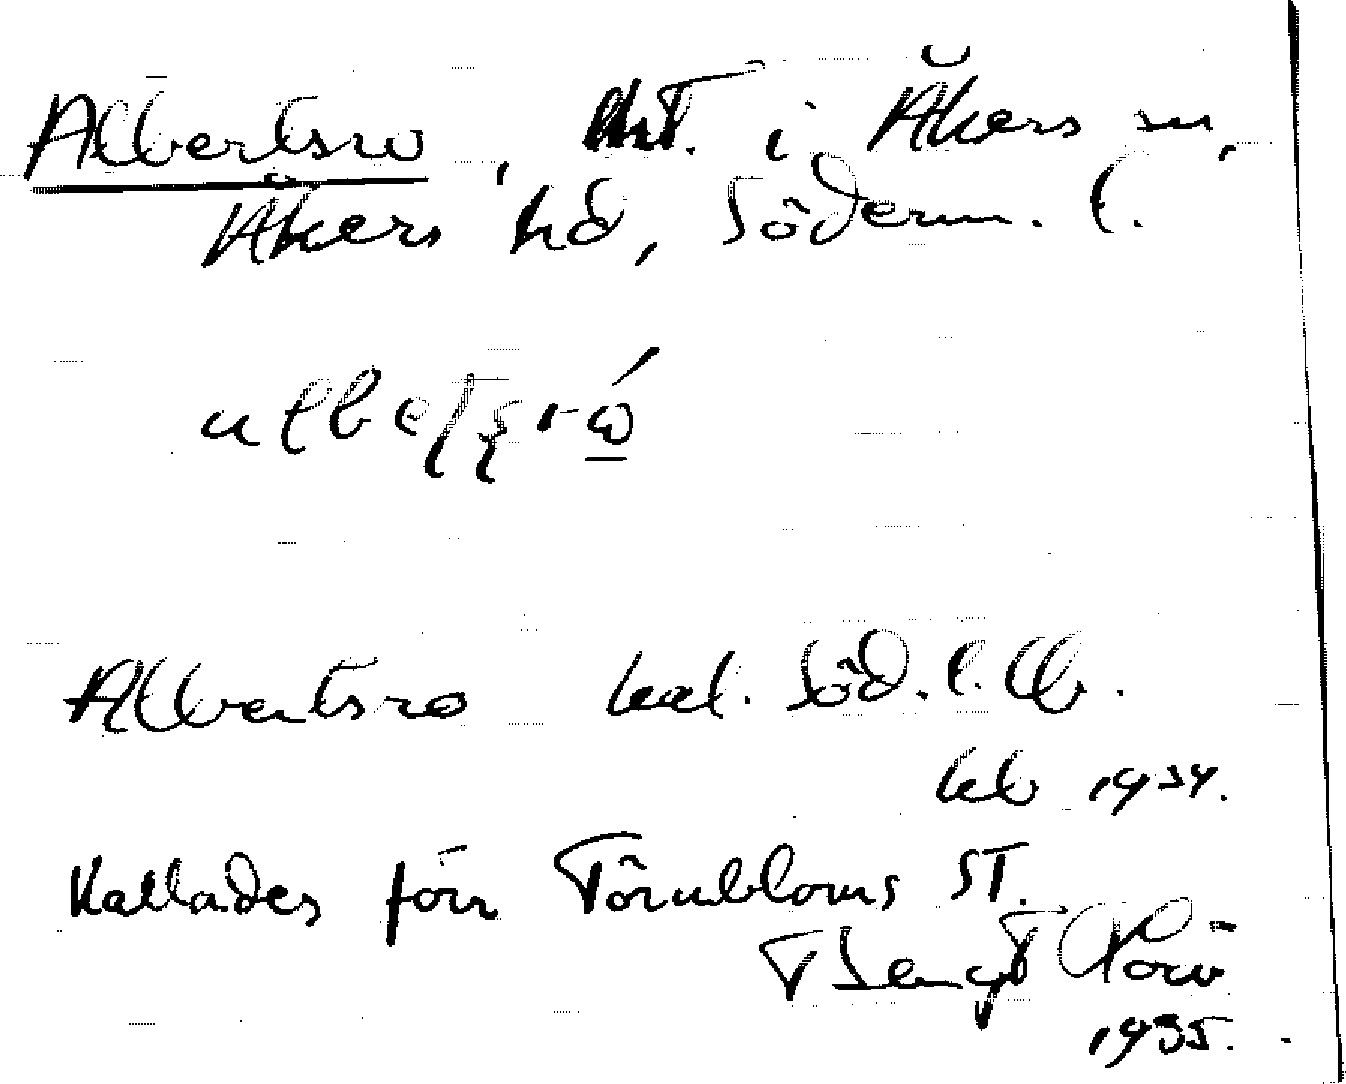 Albertsro, lht. i Åkers sn,
Åkers hd, Söderm. l.
Albertsro kal. Söd. l.
1934.
Kallades förr Törnbloms st.
Bengt
1935.